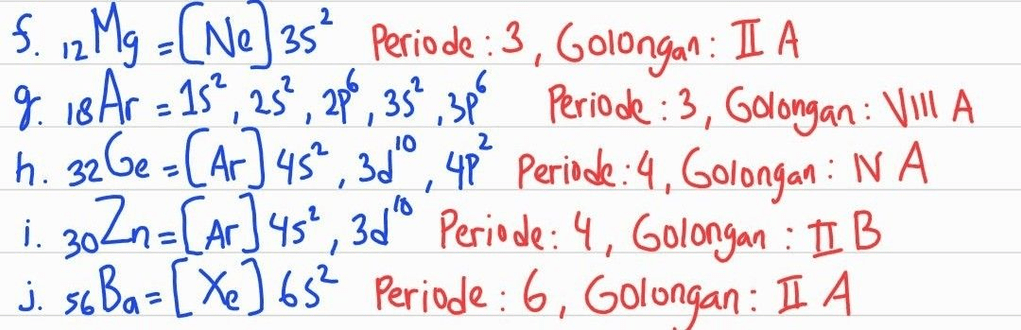 f. ₁₂Mg = [Ne] 3s² Periode : 3, Golongan : II A
g. ₁₈Ar = 1s², 2s², 2p⁶, 3s², 3p⁶ Periode : 3, Golongan : VIII A
h. ₃₂Ge = [Ar] 4s², 3d¹⁰, 4p² Periode : 4, Golongan : IV A
i. ₃₀Zn = [Ar] 4s², 3d¹⁰ Periode : 4, Golongan : II B
j. ₅₆Ba = [Xe] 6s² Periode : 6, Golongan : II A